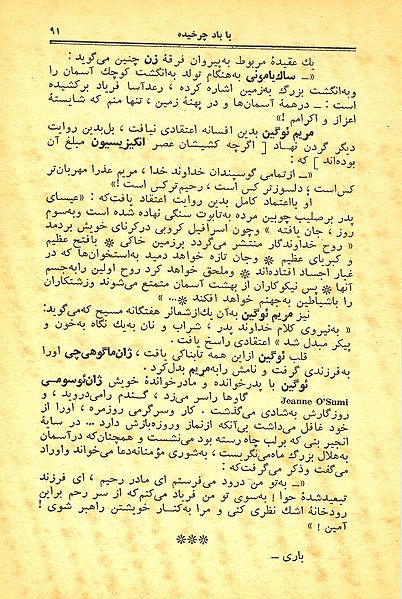 با باد چرخیده
۹۱
یك عقیدهٔ مربوط به‌پیروان فرقهٔ زن چنین می‌گوید:
«ــ ساك‌یامونی به‌هنگام تولد به‌انگشت كوچك آسمان را
وبه‌انگشت بزرگ به‌زمین اشاره كرده ، رعدآسا فریاد بركشیده
است : ــ درهمهٔ آسمان‌ها و در پهنهٔ زمین ، تنها منم كه شایستهٔ
اعزاز و اكرامم !»
مریم ئوگین بدین افسانه اعتقادی نیافت ، بل‌بدین روایت
دیگر گردن نهاد [ اگرچه كشیشان عصر انكیزیسیون مبلغ آن
بوده‌اند ] كه :
«ــ ازتمامی گوسپندان خداوند خدا ، مریم عذرا مهربان‌تر
كس‌است ؛ دلسوزتر كس است ، رحیم‌تركس است !»
او بااعتماد كامل بدین روایت اعتقاد یافت‌كه : «عیسای
پدر برصلیب چوبین مرده به‌تابوت سنگی نهاده شده است وبه‌سوم
روز ، جان یافته » وچون اسرافیل كروبی دركرنای خویش بردمد
« روح خداوندگار منتشر می‌گردد برزمین خاكی * بافتح عظیم
و كبریای عظیم * وجان تازه خواهد دمید به‌استخوان‌ها كه در
غبار اجساد افتاده‌اند * وملحق خواهد كرد روح اولین رابه‌جسم
آنها * پس نیكوكاران از بهشت آسمان متمتع می‌شوند وزشتكاران
را باشیاطین به‌جهنم خواهد افكند *... »
نیز مریم ئوگین به‌آن یك‌ازشعائر هفتگانه مسیح كه‌می‌گوید:
« به‌نیروی كلام خداوند پدر ، شراب و نان به‌یك نگاه به‌خون و
پیكر مبدل شد » اعتقادی راسخ یافت .
قلب ئوگین ازاین همه تابناكی یافت ، ژان‌ماگوهی‌چی اورا
به‌فرزندی گرفت و نامش رابه‌مریم بدل‌كرد .
ئوگین با پدرخوانده و مادرخواندهٔ خویش ژان‌ئوسومی
Jeanne O'Sumi گاوها راسر می‌زد ، گندم رامی‌دروید ، و
روزگارش به‌شادی می‌گذشت . كار وسرگرمی روزمره ، اورا از
خود غافل می‌داشت بی‌آنكه ازنماز وروزه‌بازش دارد ... در سایهٔ
انجیر بنی كه برلب چاه رسته بود می‌نشست و همچنان‌كه درآسمان
به‌هلال بزرگ ماه‌می‌نگریست، به‌شوری مؤمنانه‌دعا می‌خواند واوراد
می‌گفت وذكر می‌گرفت‌كه :
«ــ به‌تو من درود می‌فرستم ای مادر رحیم ، ای فرزند
تبعیدشدهٔ حوا ! به‌سوی تو من فریاد می‌كنم‌كه از سر رحم براین
رودخانهٔ اشك نظری كنی و مرا به‌كنار خویشتن راهبر شوی !
آمین ! »
***
باری ــ